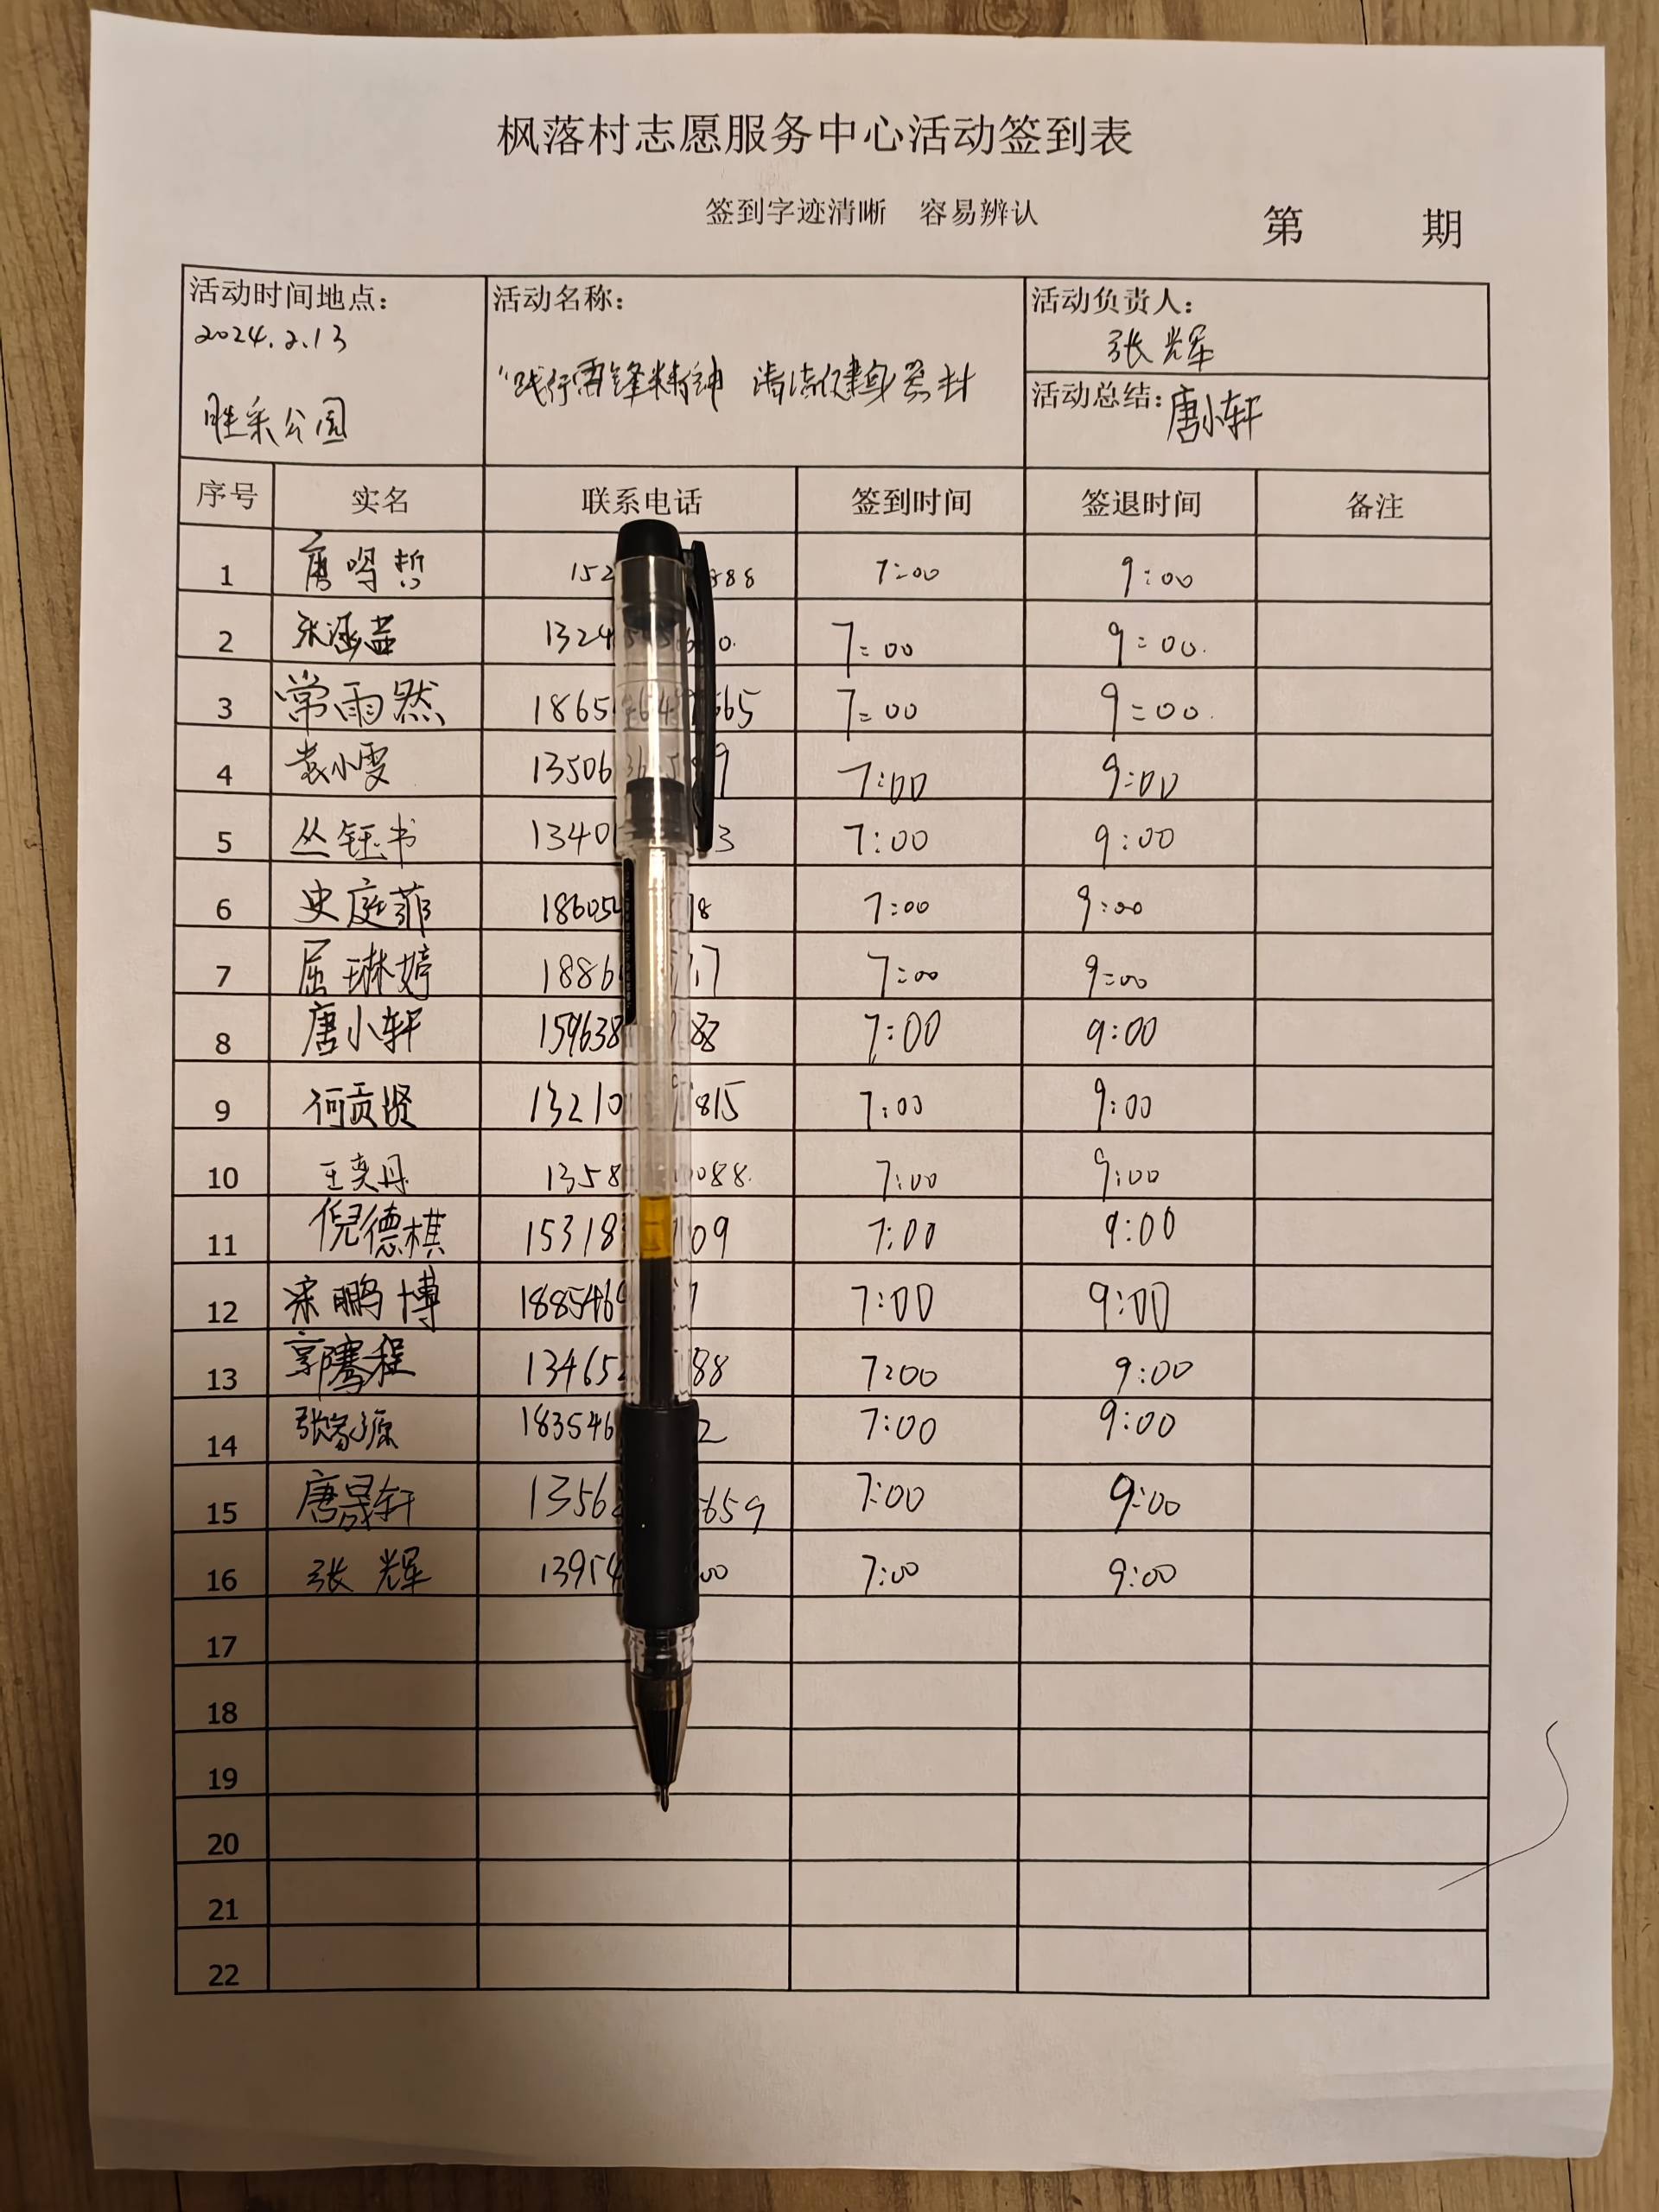 枫落村志愿服务中心活动签到表
签到字迹清晰 容易辨认
第 期
活动时间地点：
2024.2.13
胜采公园
活动名称：
“践行雷锋精神 清洁健身器材
活动负责人：
张辉
活动总结：唐小轩
序号 实名 联系电话 签到时间 签退时间 备注
1 唐鸣哲 152 888 7:00 9:00
2 张涵益 1324 0. 7:00 9:00.
3 常雨然 1865 565 7:00 9:00.
4 袁小雯 13506 9 7:00 9:00
5 丛钰书 1340 3 7:00 9:00
6 史庭菲 18605 18 7:00 9:00
7 屈琳婷 1886 17 7:00 9:00
8 唐小轩 159638 88 7:00 9:00
9 何贡贤 13210 815 7:00 9:00
10 王奕丹 1358 088. 7:00 9:00
11 倪德棋 15318 09 7:00 9:00
12 宋鹏博 188546 7 7:00 9:00
13 郭骞程 13465 88 7:00 9:00
14 张家源 183546 2 7:00 9:00
15 唐晟轩 1356 659 7:00 9:00
16 张辉 13954 00 7:00 9:00
17
18
19
20
21
22